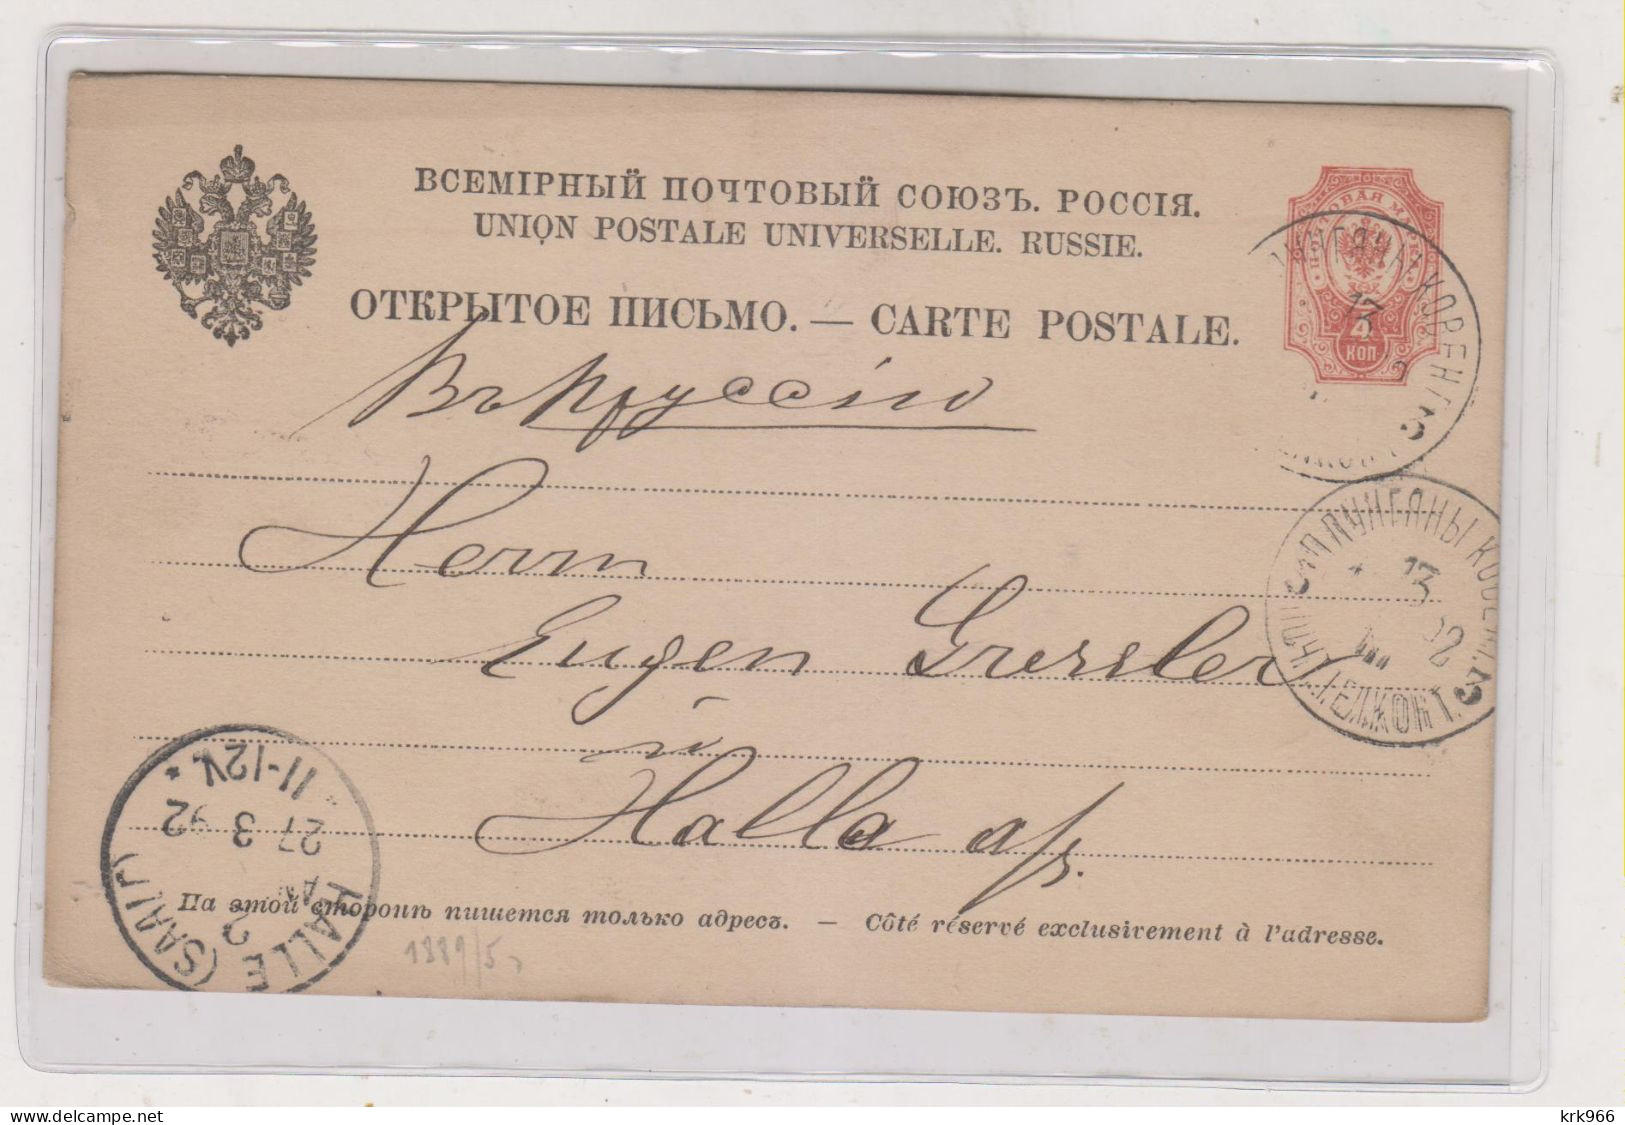 ВСЕМІРНЫЙ ПОЧТОВЫЙ СОЮЗЪ. РОССІЯ.
UNION POSTALE UNIVERSELLE. RUSSIE.
ОТКРЫТОЕ ПИСЬМО. — CARTE POSTALE.
4
КОП.
13
Въ Пруссію
Herrn
Eugen Gressler
in
Halle a/s.
13
HALLE (SAALE)
2
27 3 92
11-12V.
На этой сторонѣ пишется только адресъ. — Côté réservé exclusivement à l'adresse.
1889/5
krk966